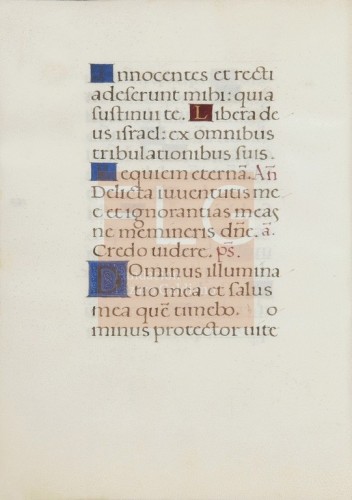 Innocentes et recti
adeserunt mihi: quia
sustinui te. Libera de
us israel: ex omnibus
tribulationibus suis.
Requiem eternã. Añ
Delicta iuventutis me
e et ignorantias meas
ne memineris dñe. ã.
Credo videre. ps.
Dominus illumina
tio mea et salus
mea quẽ timebo. o
minus protector vite
FLG